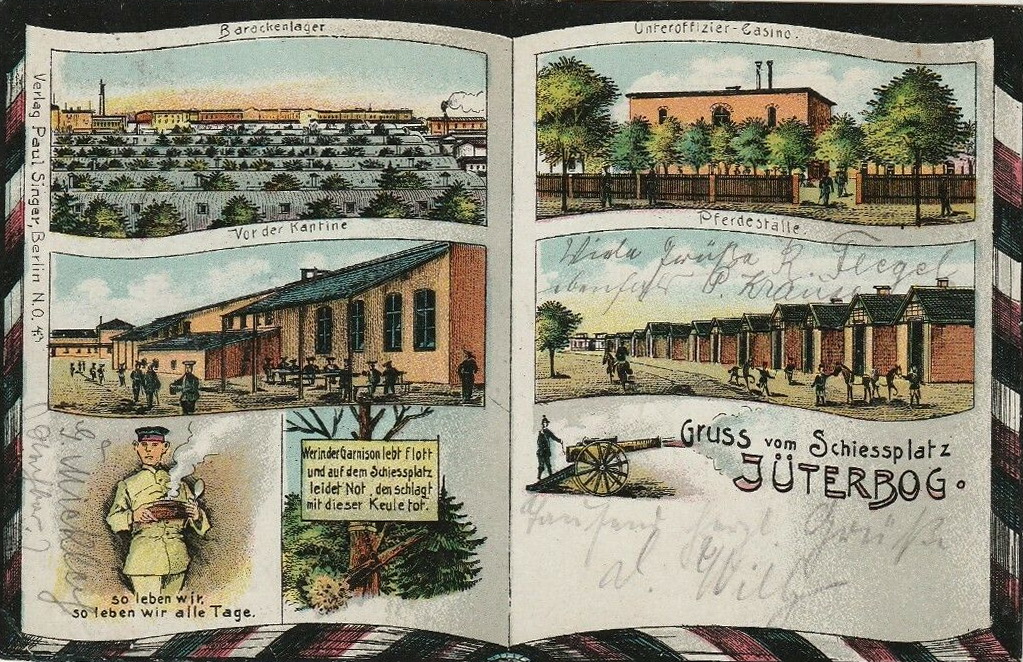 Barackenlager
Unteroffizier-Casino.
Verlag Paul Singer, Berlin N.O. 43
Vor der Kantine
Pferdeställe.
Viele Grüße R. Flegel
ebenfalls P. Krause
Wer in der Garnison lebt flott
und auf dem Schiessplatz
leidet Not, den schlagt
mit dieser Keule tot.
so leben wir,
so leben wir alle Tage.
Gruss vom Schiessplatz
JÜTERBOG.
Tausend herzl. Grüße
d. Willy